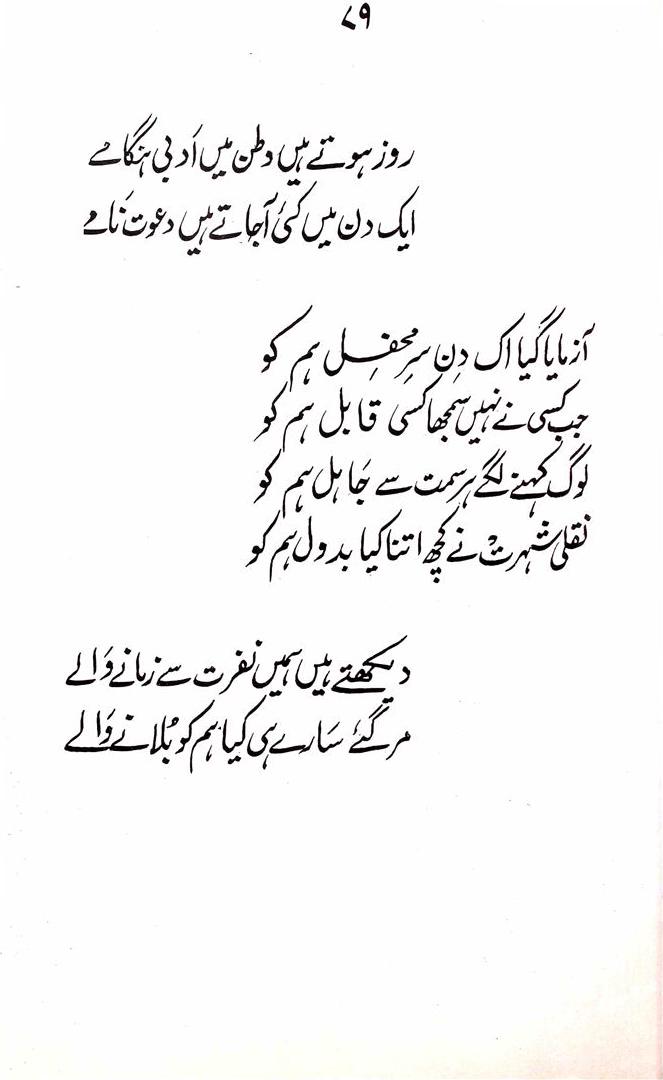 ۷۹
روز ہوتے ہیں وطن میں اَدبی ہنگامے
ایک دن میں کئی آجاتے ہیں دعوت نَامے
آزمایا گیا اک دِن سرِ محفِل ہم کو
جب کسی نے نہیں سمجھا کسی قابل ہم کو
لوگ کہنے لگے ہر سمت سے جَاہل ہم کو
نقلی شہرت نے کچھ اتنا کیا بددل ہم کو
دیکھتے ہیں ہمیں نفرت سے زمانے وَالے
مر گئے سَارے ہی کیا ہم کو بُلانے وَالے